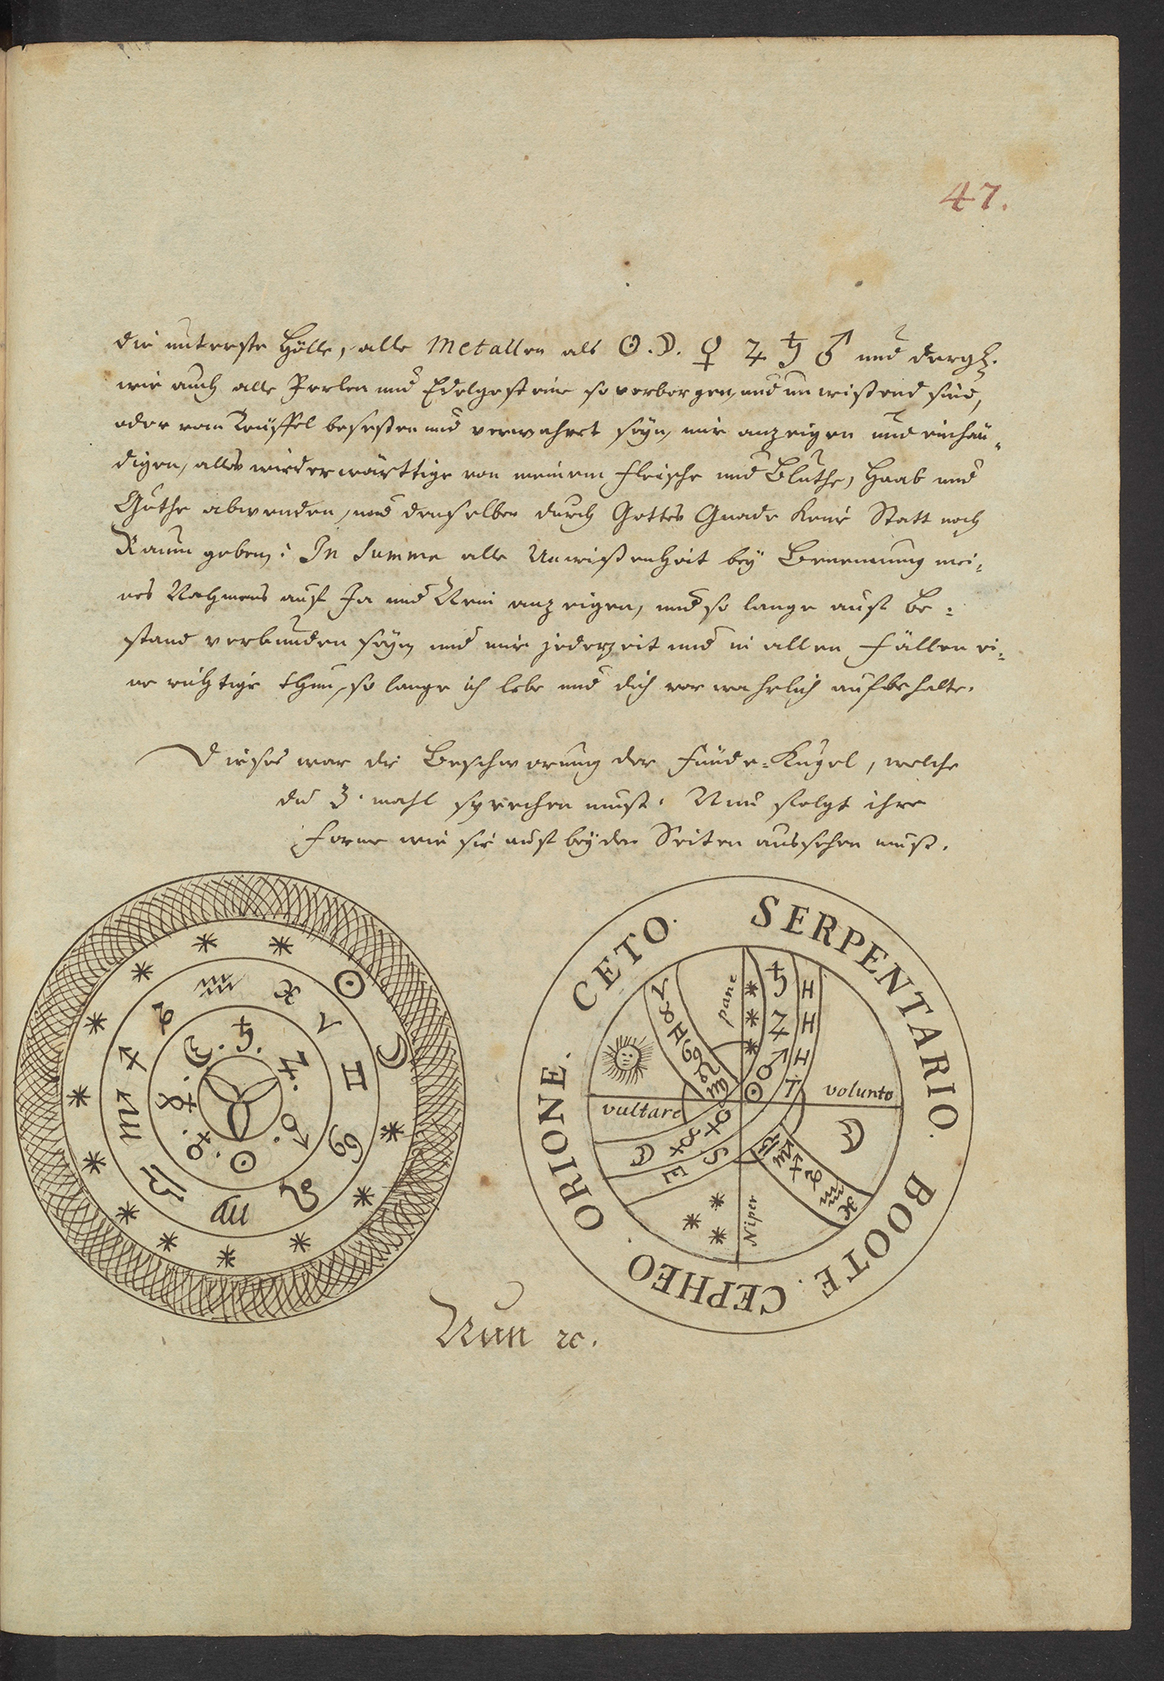 47.
die unterste Hölle, alle Metallen als ☉. ☽. ♀ ♃ ♄ ♂ und dergl.
wie auch alle Perlen und Edelgesteine so verborgen, und unwißend sind,
oder vom Teüffel beseßen und verwahret seyn, mir anzeigen und einhän-
digen, alles wiederwärttige von meinem Fleische und Bluthe, Haab und
Guthe abwenden, und denselben durch Gottes Gnade keine Statt noch
Raum geben; In Summa alle Unwißenheit bey Benennung mei-
nes Nahmens auf Ja und Nein anzeigen, und so lange auf be-
stand verbunden seyn und mir jederzeit und in allen Fällen ei-
ne richtige thun, so lange ich lebe und dich verwahrlich aufbehalte.
Dieses war die Beschwörung der Funde-Kugel, welche
du 3. mahl sprechen must. Nun folgt ihre
Forme wie sie auf beyden Seiten aussehen muß.
♒ ♓ ♈ ♊ ♋ ♌ ♎ ♏ ♐ ♑
♄. ♃. ♂. ☉ ♀. ☿. ☽.
☉ ☽
CETO.
SERPENTARIO.
BOOTE.
CEPHEO.
ORIONE.
pane
volunto
vultare
Niper
H H I T
S E
Nun ꝛc.